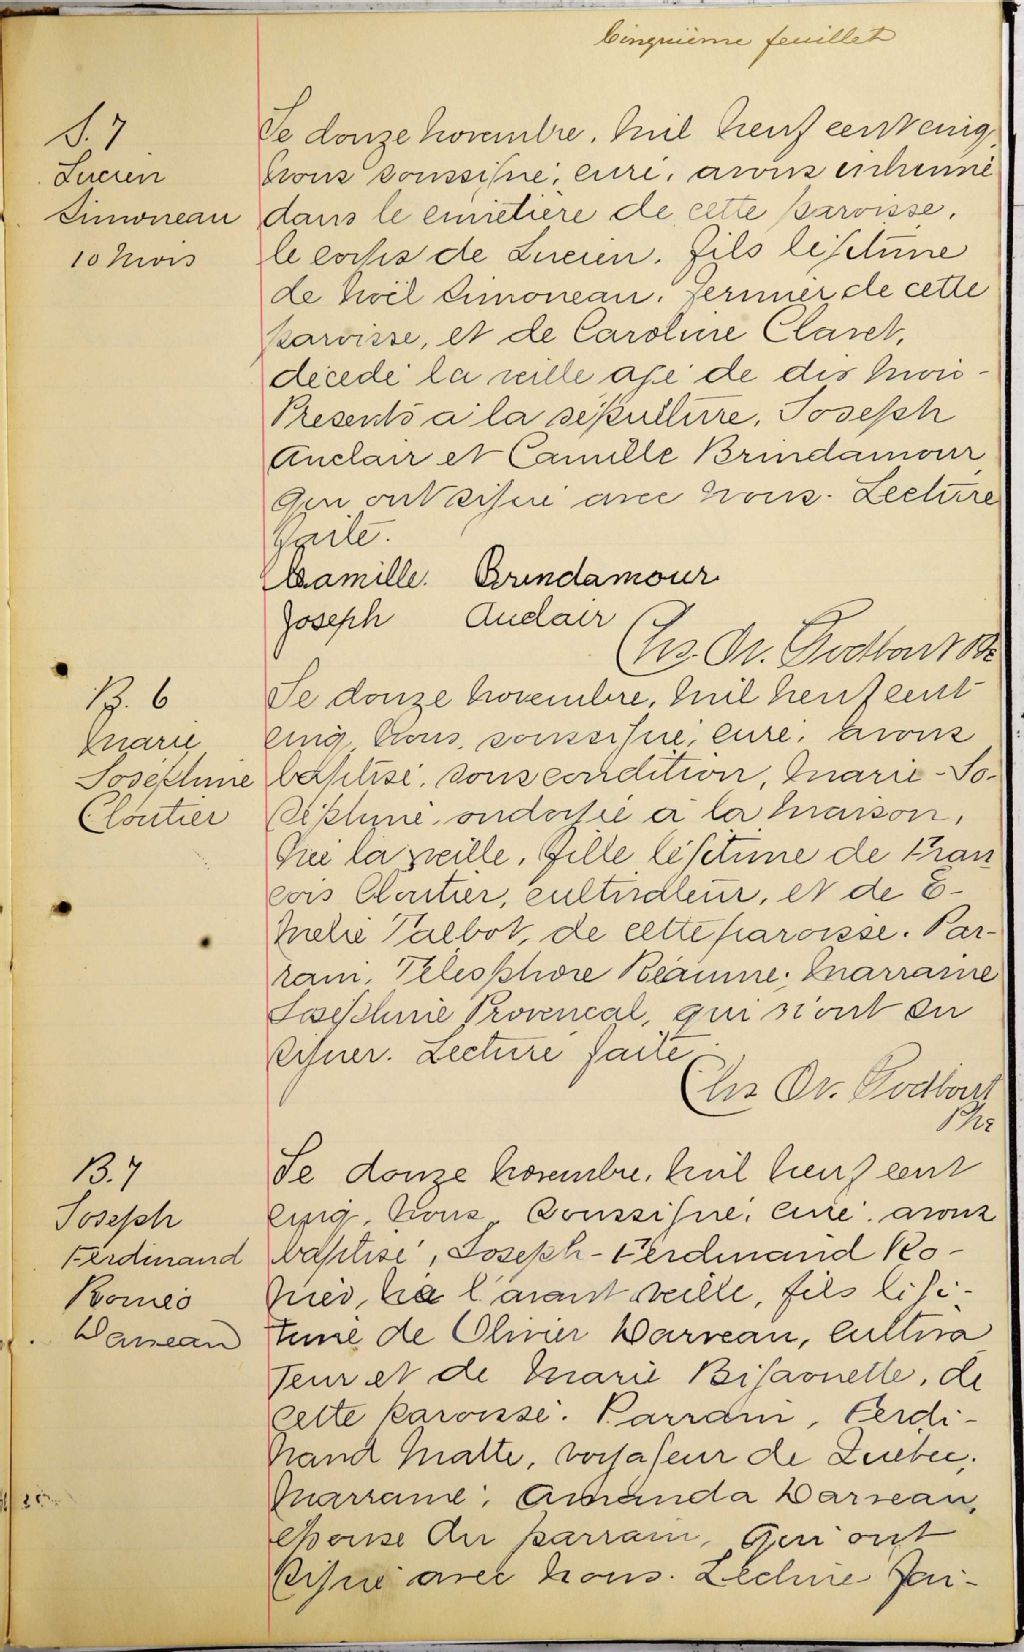 Cinquième feuillet
S. 7
Lucien
Simoneau
10 mois
Le douze novembre, mil neuf cent cinq,
nous soussigné, curé, avons inhumé
dans le cimetière de cette paroisse,
le corps de Lucien, fils légitime
de Noël Simoneau, fermier de cette
paroisse, et de Caroline Clavet,
décédé la veille agé de dix mois -
Présents à la sépulture, Joseph
Auclair et Camille Brindamour
qui ont signé avec nous. Lecture
faite.
Camille Brindamour
Joseph Auclair
Chs. Ov. Godbout Ptre
B. 6
Marie
Joséphine
Cloutier
Le douze novembre, mil neuf cent
cinq, nous, soussigné, curé, avons
baptisé, sous condition, Marie-Jo-
séphine, ondoyée à la maison,
née la veille, fille légitime de Fran
çois Cloutier, cultivateur, et de E-
mélie Talbot, de cette paroisse. Par-
rain, Télesphore Réaume; marraine
Joséphine Provencal, qui n'ont su
signer. Lecture faite.
Chs Ov. Godbout
Ptre
B. 7
Joseph
Ferdinand
Roméo
Darveau
Le douze novembre, mil neuf cent
cinq, nous, soussigné, curé, avons
baptisé, Joseph-Ferdinand Ro-
méo, né l'avant veille, fils légi-
time de Olivier Darveau, cultiva
teur et de Marie Bigaonette, de
cette paroisse. Parrain, Ferdi-
nand Matte, voyageur de Québec;
marraine, Amanda Darveau,
épouse du parrain, qui ont
signé avec nous. Lecture fai-